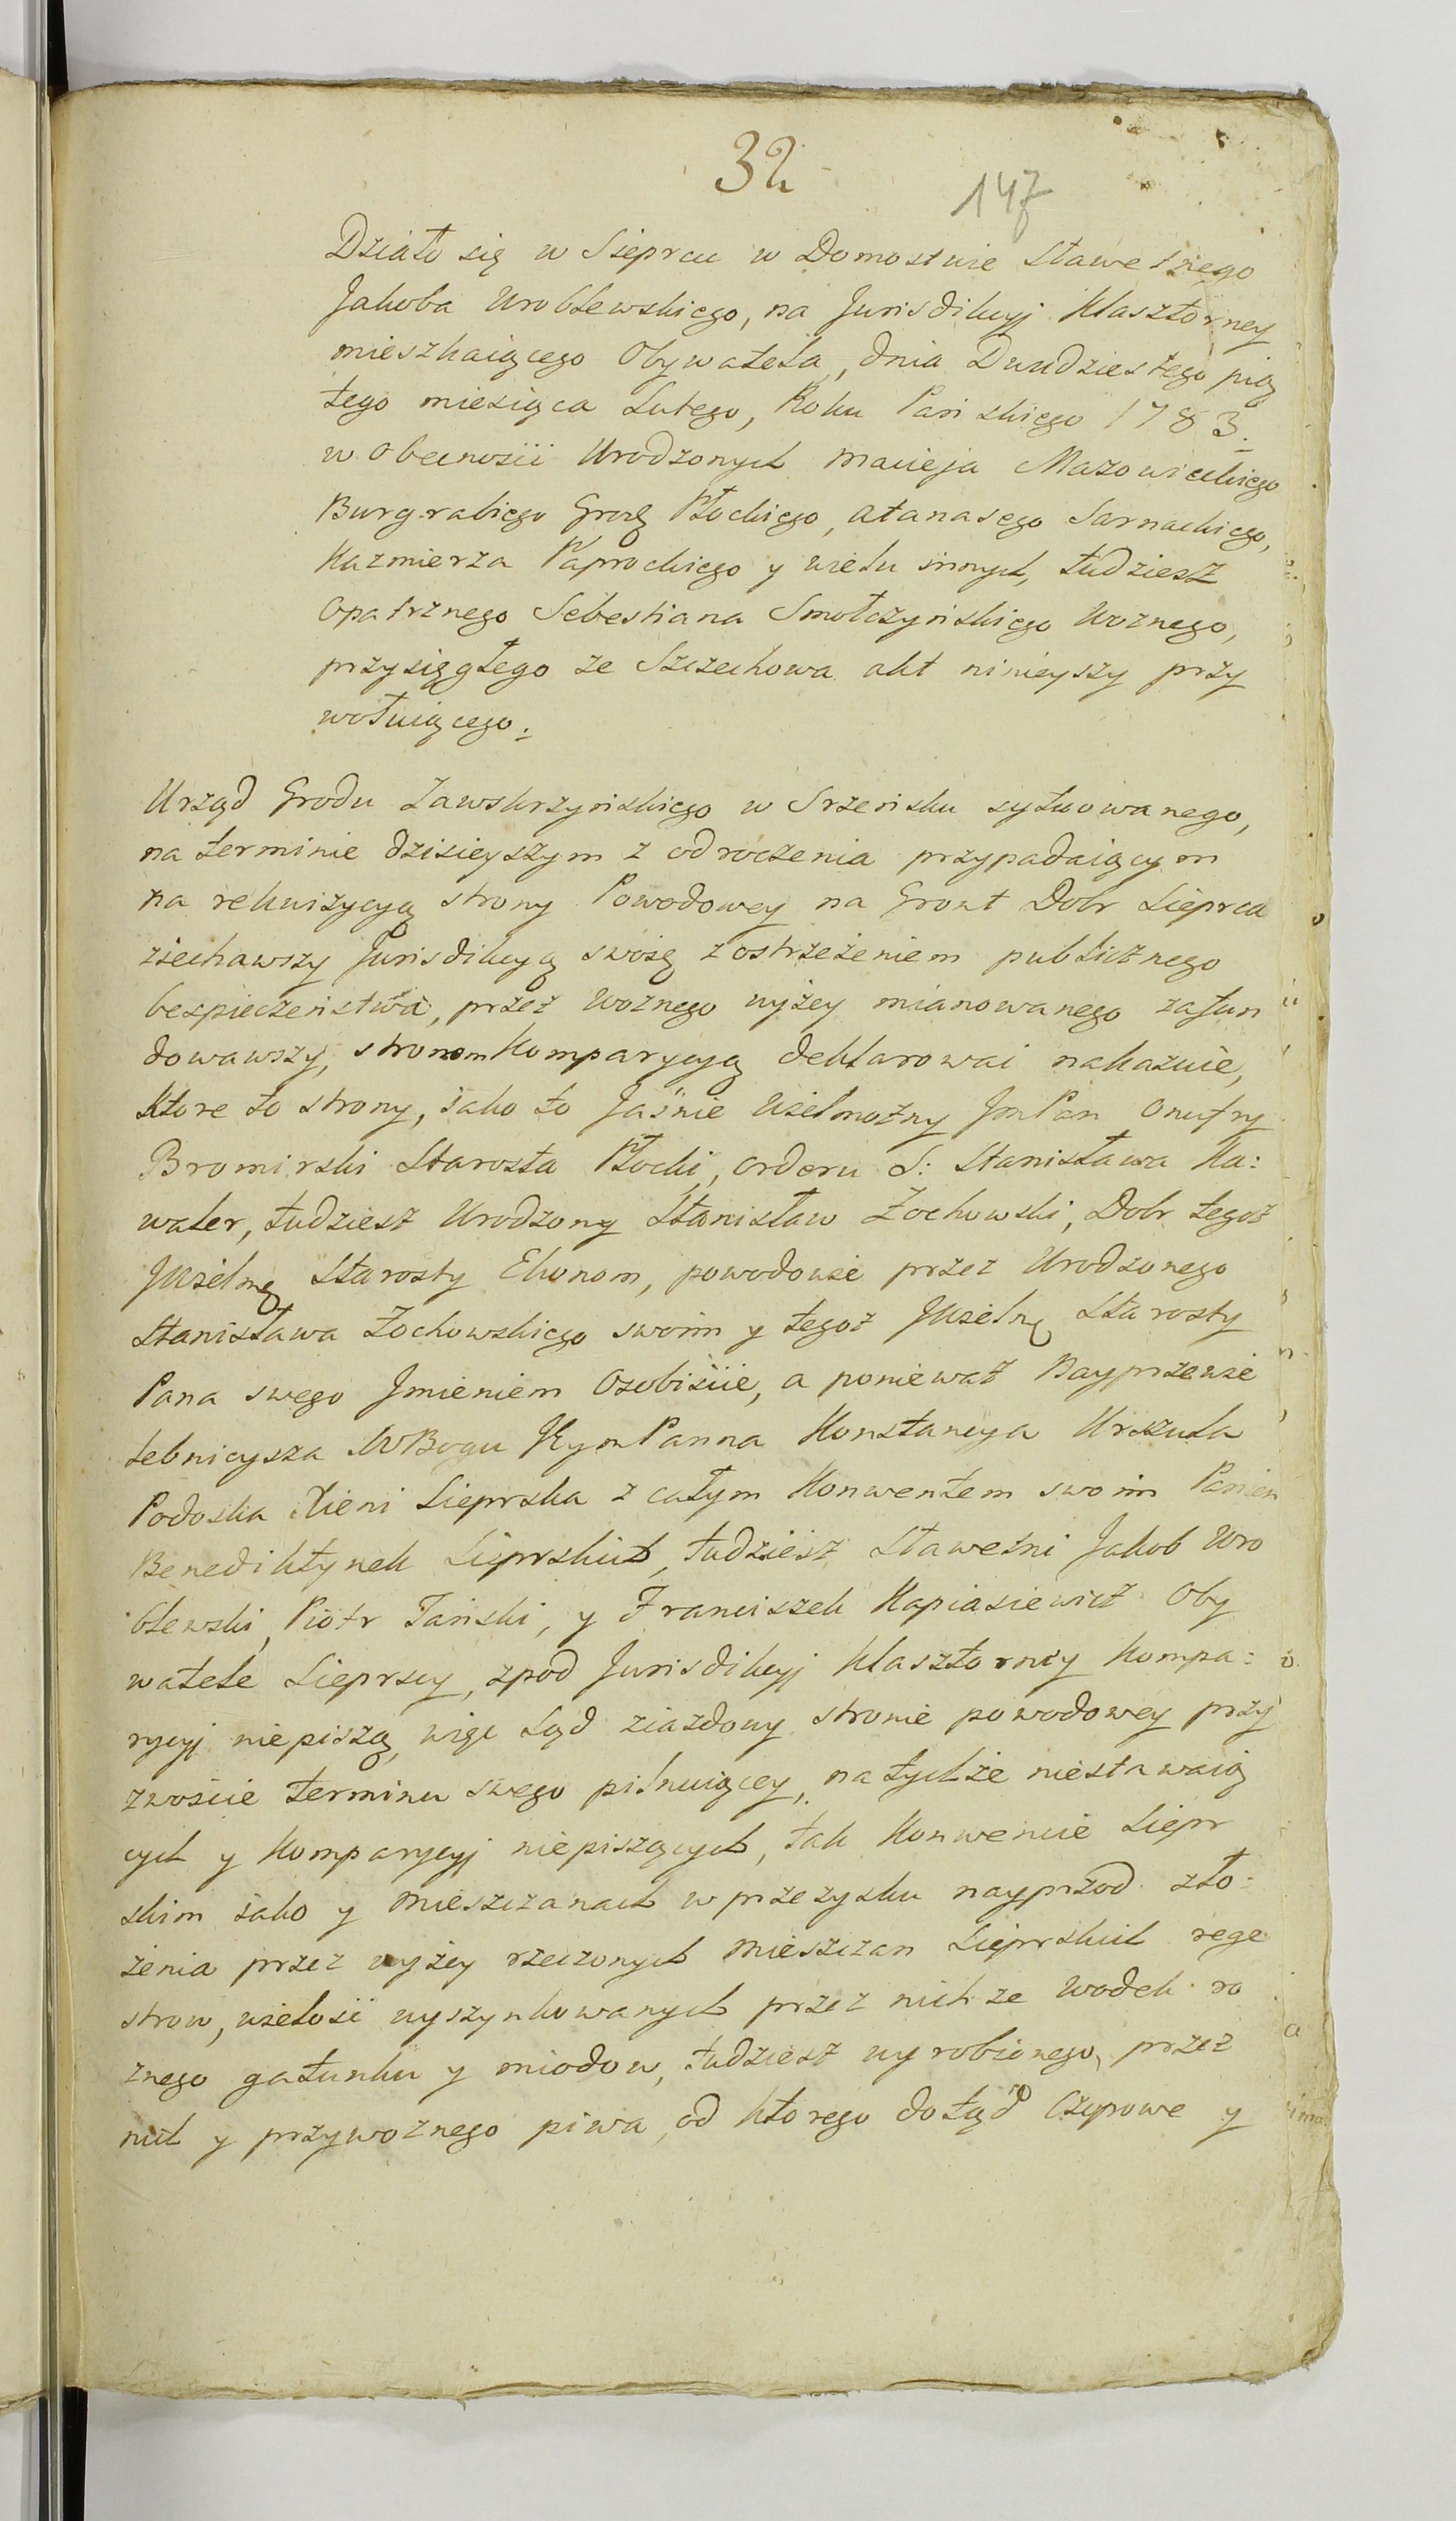 32
147
Działo się w Sieprcu w Domostwie Sławetnego
Jakoba Wroblewskiego, na Jurisdikcyi Klasztorney
mieszkaiącego Obywatela, dnia Dwudziestego pią
tego miesiąca Lutego, Roku Pańskiego 1783.
w obecności Urodzonych Macieja Mazowieckiego
Burgrabiego Grodz Płockiego, Atanasego Sarnackiego,
Kazmierza Paprockiego y wielu innych, tudziesz
Opatrznego Sebestiana Smolczyńskiego Woznego,
przysięgłego ze Szczechowa akt ninieyszy przy
wołuiącego.
Urząd Grodu Zawskrzyńskiego w Srzeńsku sytuowanego,
na terminie dzisieyszym z odroczenia przypadaiącym
na rekwizycyą strony Powodowey na Gront Dobr Sieprca
ziechawszy Jurisdikcyą swoię z ostrzeżeniem publicznego
bespieczeństwa, przez Woznego wyżey mianowanego zafun
dowawszy, stronom Komparycyą deklarować nakazuie,
Ktore to strony, iako to Jaśnie Wielmożny JmPan Onufry
Bromirski Starosta Płocki, Orderu S: Stanisława Ka:
waler, tudziesz Urodzony Stanisław Żochowski, Dobr tegoż
JWielmę Starosty Ekonom, powodowie przez Urodzonego
Stanisława Żochowskiego swoim y tegoż JWielmę Starosty
Pana swego Jmieniem Osobiście, a ponieważ Nayprzewie
lebnieysza W Bogu JeymPanna Konstancya Urszula
Podoska Xieni Sieprska z całym Konwentem swoim Panien
Benediktynek Sieprskich, tudziesz Sławetni Jakob Wro
blewski, Piotr Tański, y Franciszek Kapiasiewicz Oby
watele Sieprscy, zpod Jurisdikcyi Klasztorney Kompa:
rycyi niepiszą, więc Sąd ziazdowy stronie powodowey przy
zwoicie terminu swego pilnuiącey, na tychże niestawaią
cych y Komparycyi niepiszących, tak Konwencie Siepr
skim iako y Mieszczanach w przezysku nayprzod zło:
żenia przez wyżey rzeczonych Mieszczan Sieprskich rege
strow, wielości wyszynkowanych przez nichże wodek ro
znego gatunku y miodow, tudziesz wyrobionego, przez
nich y przywoznego piwa, od ktorego dotąd Czopowe y